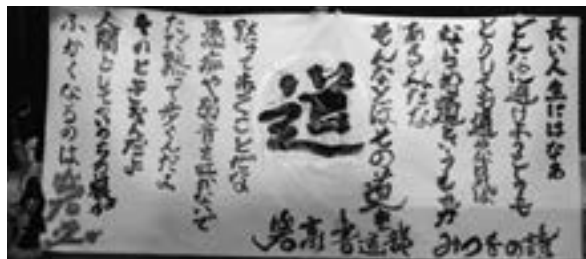 長い人生にはなあ
どんなに避けようとしても
どうしても通らなければ
ならぬ道というものが
あるんだな
そんなときはその道を
道
黙って歩くことだな
愚痴や弱音を吐かないで
ただ黙って歩くんだよ
そのときなんだよ
人間としてのいのちの根が
ふかくなるのは
高書道部
みつをの詩